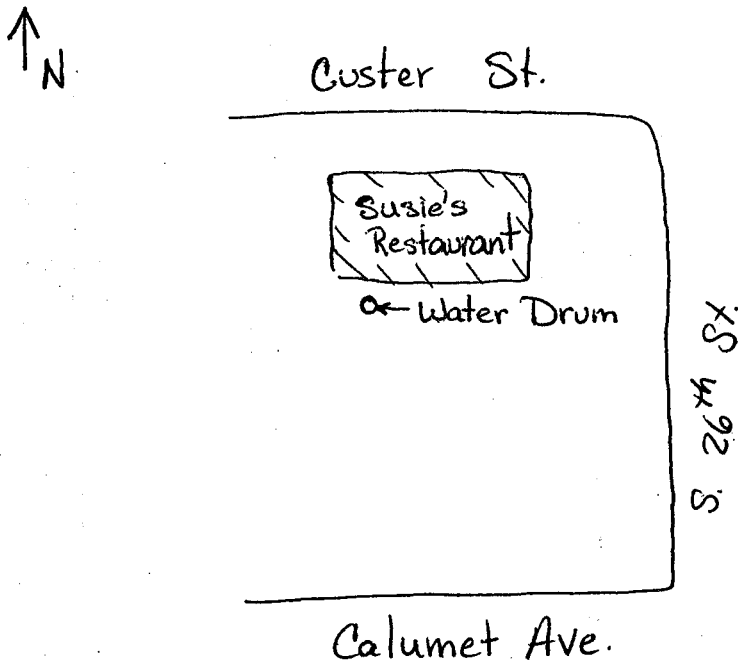 N
Custer St.
Susie's
Restaurant
Water Drum
S. 26th St.
Calumet Ave.